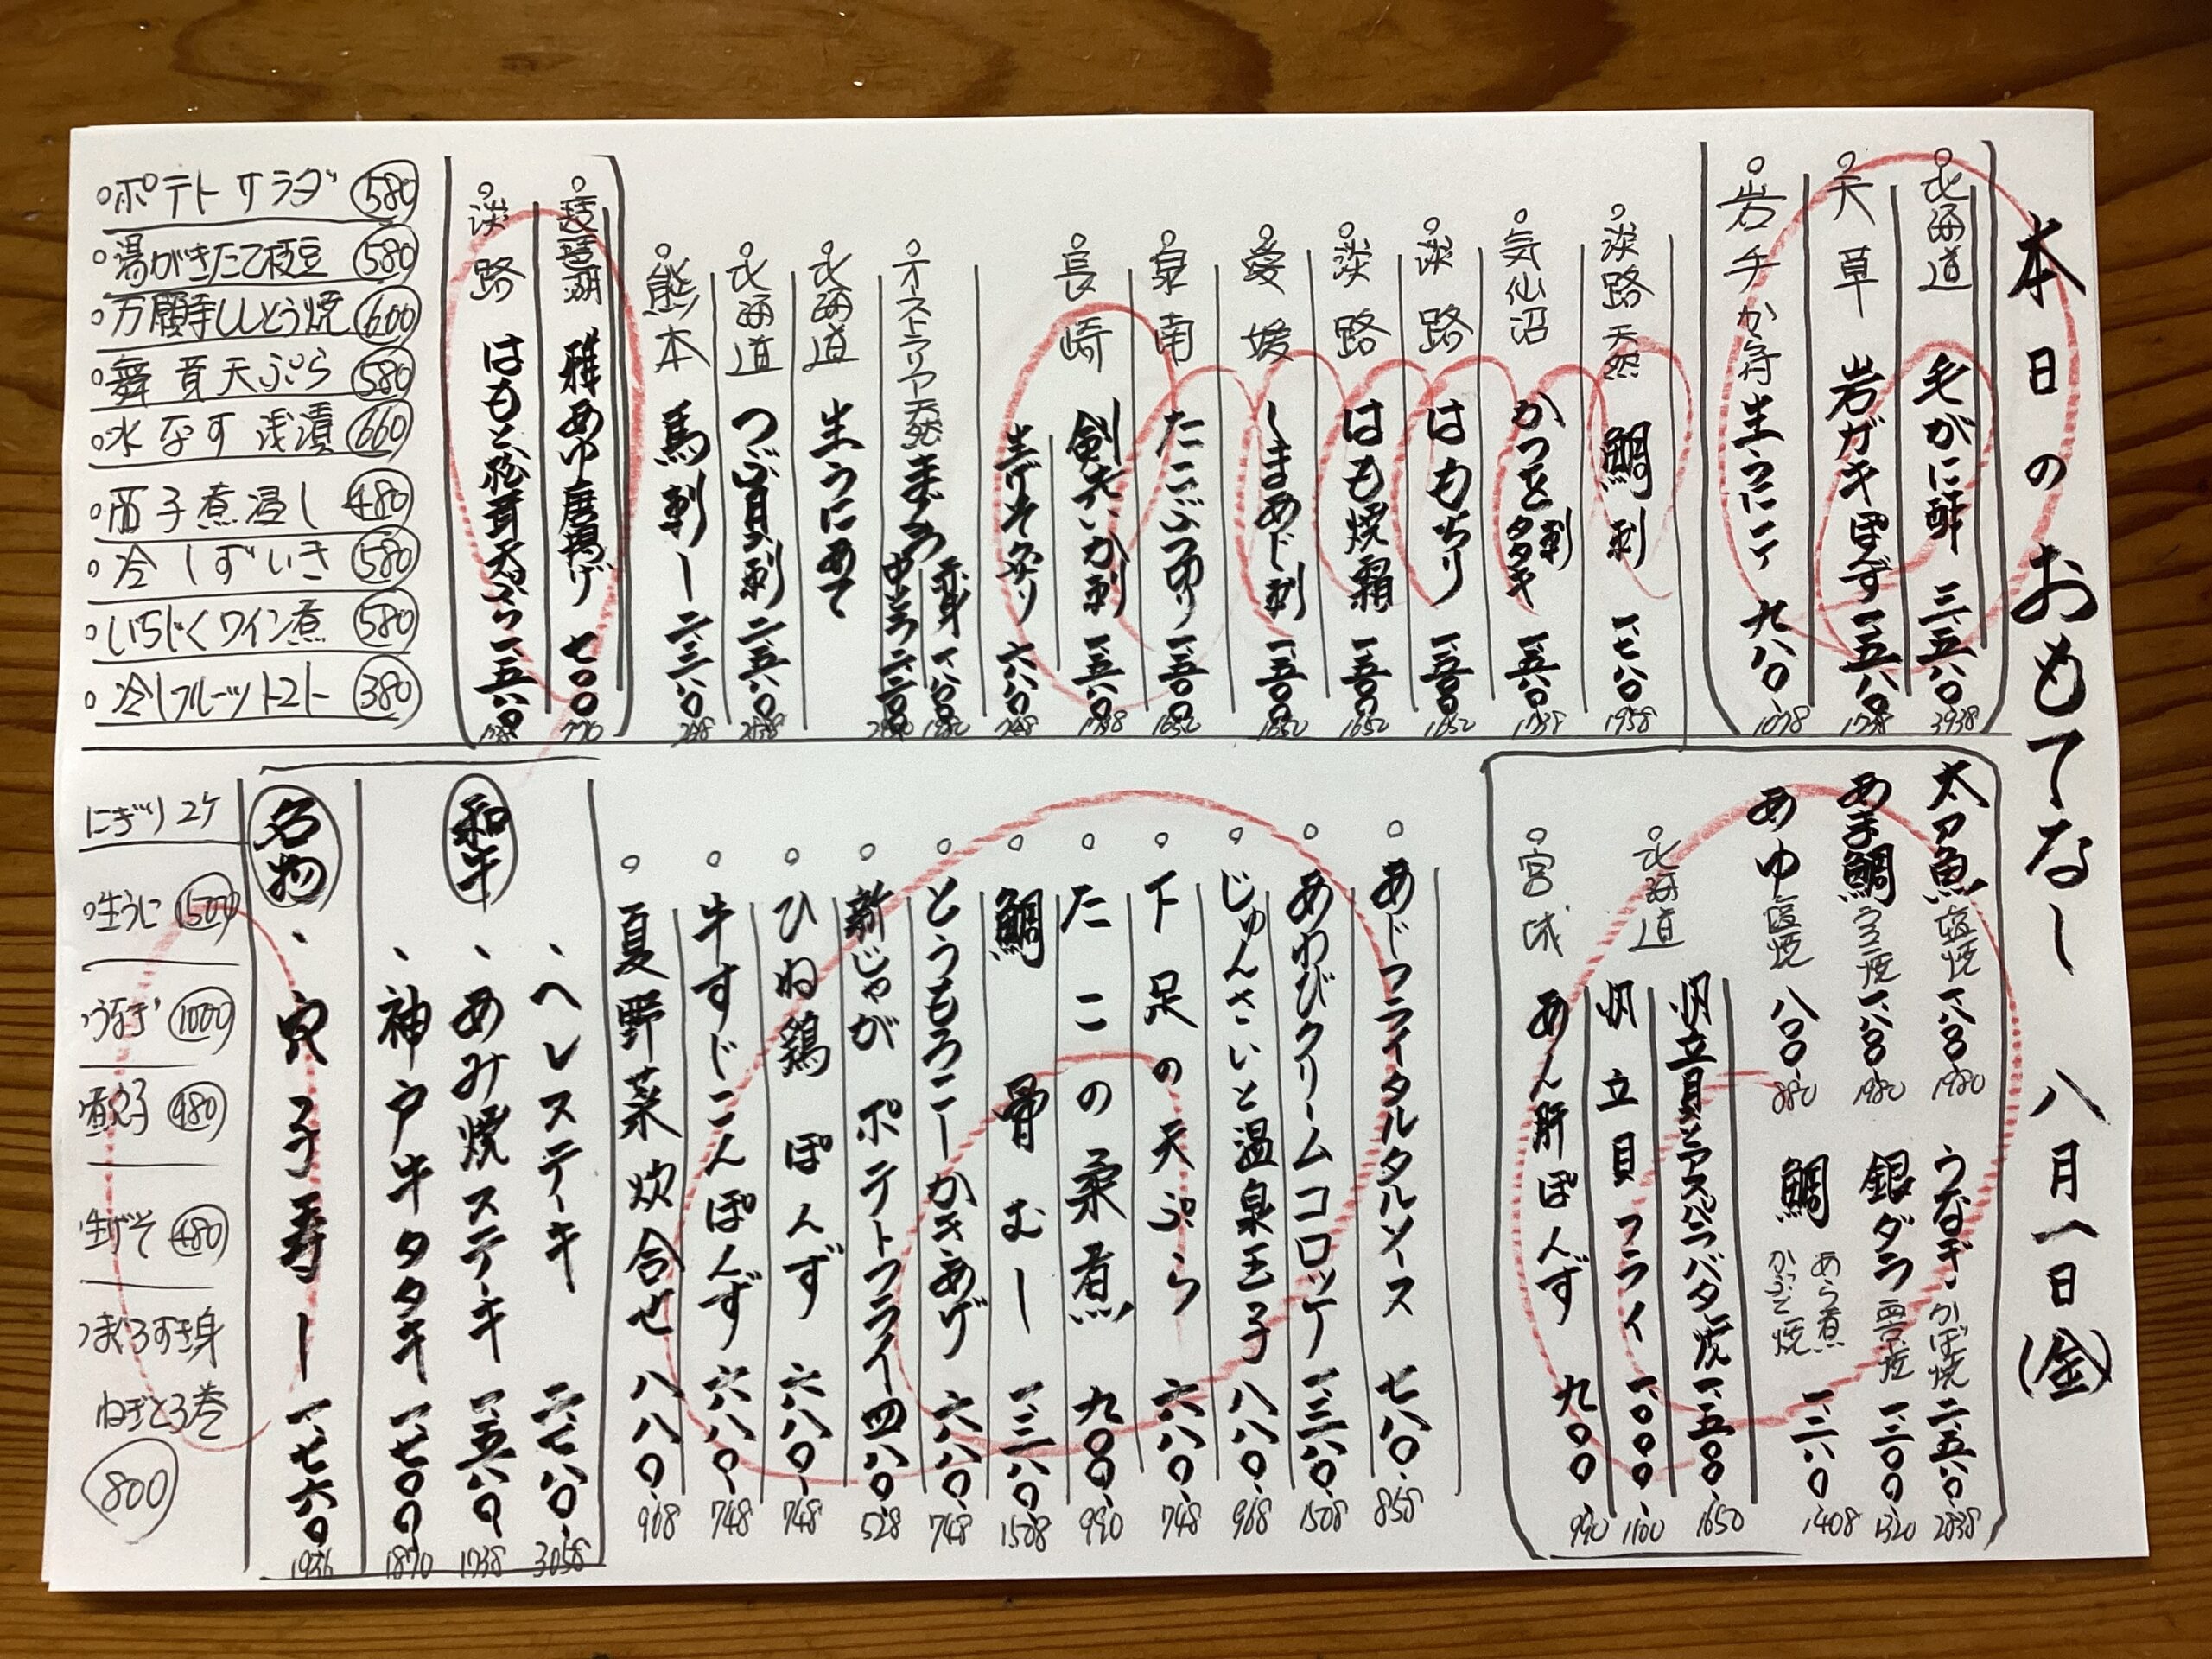 本日のおもてなし 八月一日(金)
北海道 毛がに酢 三、五八〇、 3938
天草 岩ガキぽんず 一、五八〇、 1738
岩手 か舟生うに 九八〇、 1078
淡路 天然 鯛刺 一、七八〇 1958
気仙沼 かつを 刺 タタキ 一、五八〇 1738
淡路 はもちり 一、五〇〇 1650
淡路 はも焼霜 一、五〇〇 1650
愛媛 しまあじ刺 一、五〇〇 1650
泉南 たこぶつ切り 一、五〇〇 1650
長崎 剣先いか刺 一、五八〇 1738
生げそ炙り 六八〇 748
オーストラリア天然 まぐろ 赤身 一、八〇〇 1980
中とろ
北海道 生うにあて
北海道 つぶ貝刺 二、五八〇
熊本 馬刺し 二、三八〇
琵琶湖 稚あゆ唐揚げ 七〇〇 770
淡路 はもと松茸天ぷら 一、五八〇
ポテトサラダ 580
湯がきたて枝豆 580
万願寺ししとう焼 600
舞茸天ぷら 580
水なす浅漬 660
茄子煮浸し 480
冷しずいき 580
いちじくワイン煮 580
冷しフルーツトマト 380
太刀魚 塩焼 一、八〇〇 1980
あま鯛 うろこ焼 一、八〇〇 1980
あゆ 塩焼 八〇〇 880
うなぎ かば焼 二、五八〇 2838
銀ダラ 西京焼 一、二〇〇 1320
鯛 あら煮 かぶと焼 一、二八〇 1408
北海道 帆立貝とアスパラバタ炒 一、五〇〇 1650
帆立貝フライ 一、〇〇〇 1100
宮城 あん肝ぽんず 九〇〇 990
あじフライタルタルソース 七八〇、 858
あわびクリームコロッケ 一、三八〇、 1508
じゅんさいと温泉玉子 八八〇、 968
下足の天ぷら 六八〇、 748
たこの柔煮 九〇〇、 990
鯛骨むし 一、三八〇、 1508
とうもろこしかきあげ 六八〇、 748
新じゃがポテトフライ 四八〇、 528
ひね鶏ぽんず 六八〇、 748
牛すじこんぽんず 六八〇、 748
夏野菜炊合せ 八八〇、 968
和牛
、ヘレステーキ 二、七八〇、 3058
、あみ焼ステーキ 一、五八〇 1738
、神戸牛タタキ 一、七〇〇、 1870
名物
、穴子寿し 一、七六〇 1936
にぎり 2ケ
生うに 1500
うなぎ 1000
煮穴子 480
生げそ 480
まぐろすき身
ねぎとろ巻
800